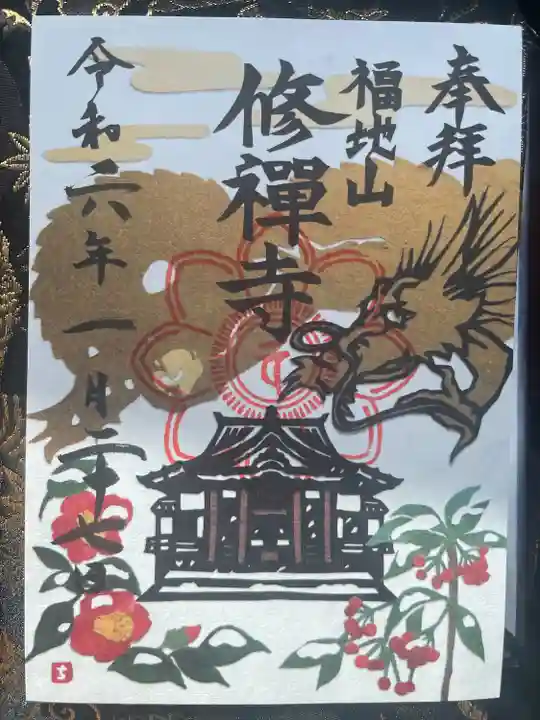 奉拝
福地山
修禪寺
令和六年一月二十七日